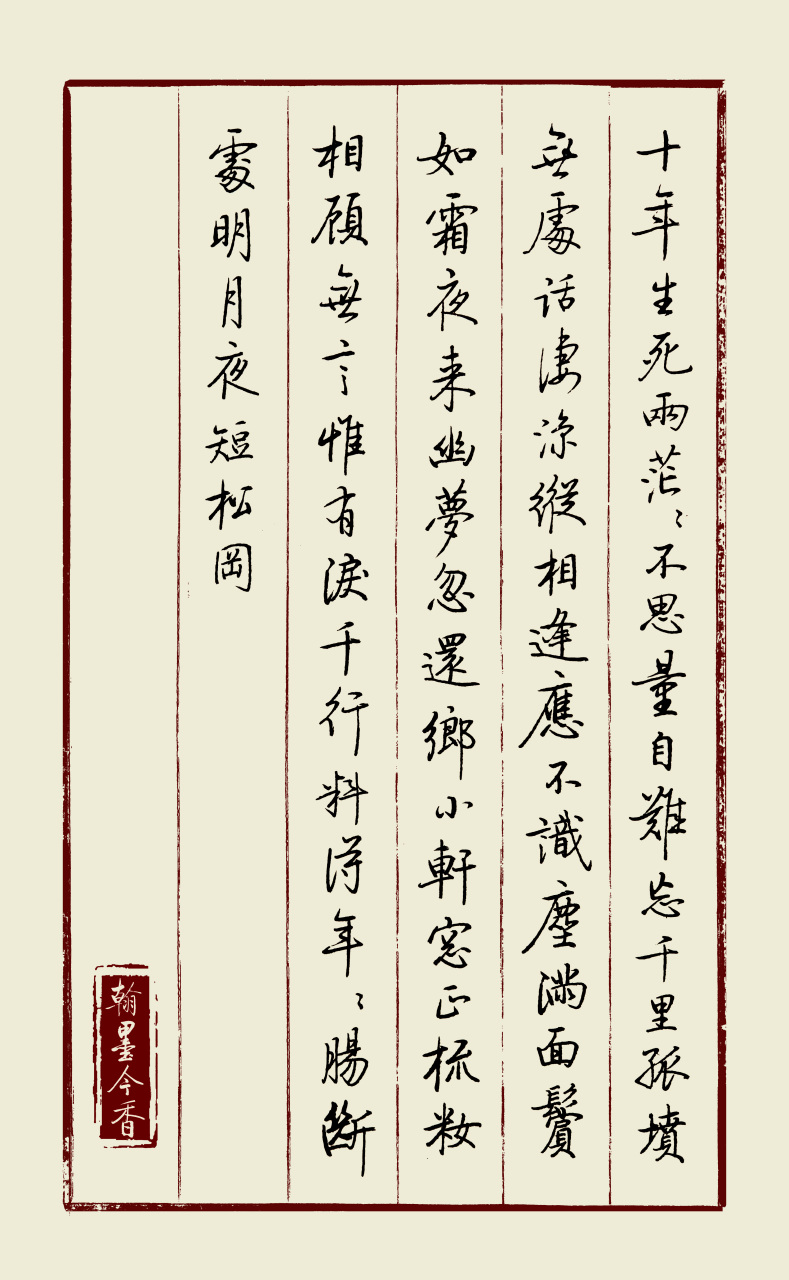 十年生死兩茫〻不思量自難忘千里孤墳
無處話淒涼縱相逢應不識塵滿面鬢
如霜夜来幽夢忽還鄉小軒窓正梳妝
相顧無言惟有淚千行料得年〻腸斷
處明月夜短松岡
翰墨今香